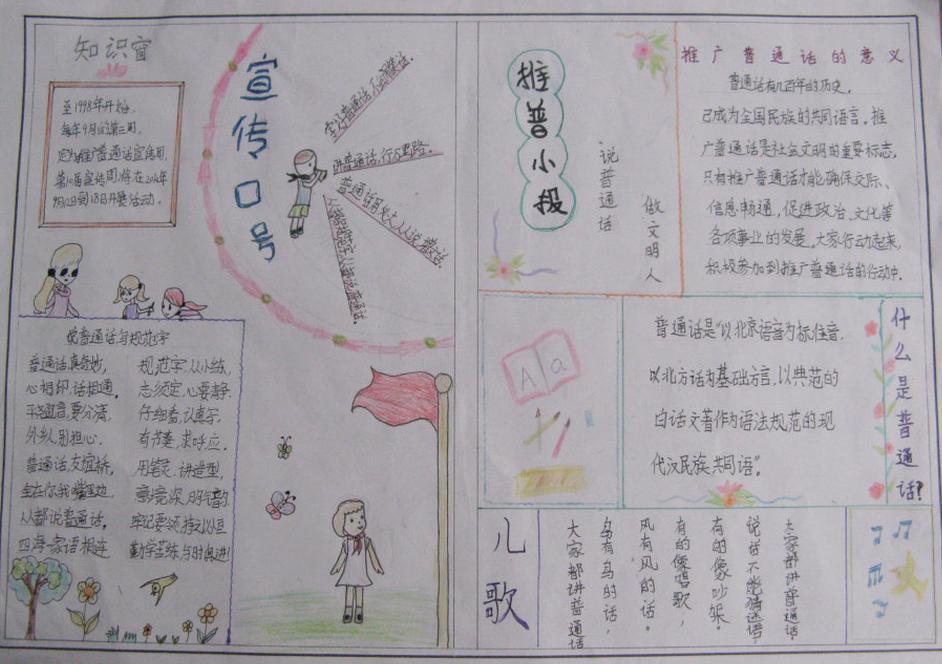 知识窗
至1998年开始,
每年9月的第三周,
定为推广普通话宣传周,
9月12日到18日开展活动.
宣传口号
说普通话
做文明人
推普小报
推广普通话的意义
普通话有几百年的历史,
已成为全国民族的共同语言. 推
广普通话是社会文明的重要标志,
只有推广普通话才能确保交际、
信息畅通, 促进政治、文化等
各项事业的发展. 大家行动起来,
积极参加到推广普通话的行动中.
说普通话与规范字
普通话,真奇妙,
心相印,话相通.
要分清,
外乡人,别担心.
普通话,友谊桥,
全在你我嘴里边.
人人都说普通话,
四海一家语相连
规范字,从小练,
志须定,心要静.
仔细看,认真写,
求呼应.
用笔灵,讲造型,
意境深,明气韵.
牢记要领,持之以恒
勤学苦练,与时俱进!
什么是普通话?
普通话是“以北京语音为标准音,
以北方话为基础方言,以典范的
白话文著作为语法规范的现
代汉民族共同语”.
A a
儿歌
大家都讲普通话
鸟有鸟的话,
风有风的话.
有的像唱歌,
有的像吵架.
说话不能猜谜语,
大家都讲普通话.